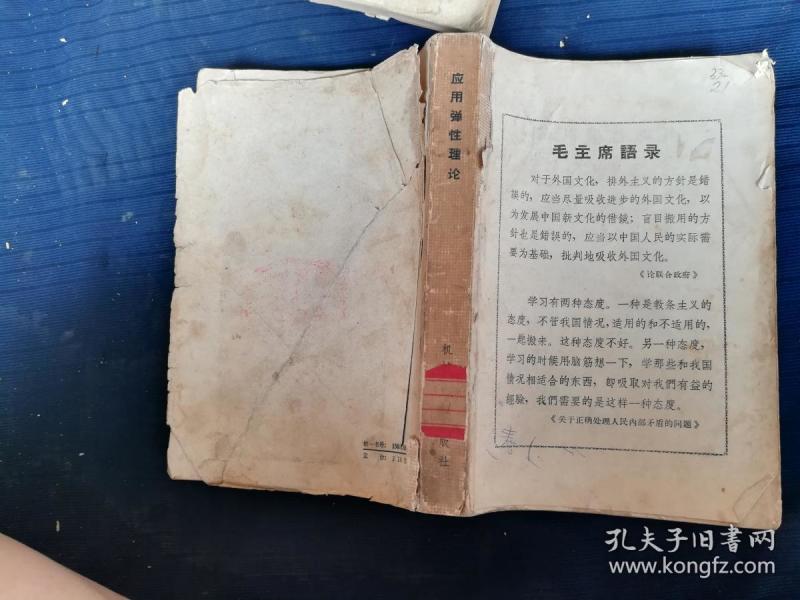 应用弹性理论
机
版社
毛主席語录
对于外国文化，排外主义的方針是錯
誤的，应当尽量吸收进步的外国文化，以
为发展中国新文化的借鏡；盲目搬用的方
針也是錯誤的，应当以中国人民的实际需
要为基础，批判地吸收外国文化。
《论联合政府》
学习有两种态度。一种是教条主义的
态度，不管我国情况，适用的和不适用的，
一起搬来。这种态度不好。另一种态度，
学习的时候用脑筋想一下，学那些和我国
情况相适合的东西，即吸取对我們有益的
經驗，我們需要的是这样一种态度。
《关于正确处理人民内部矛盾的問題》
孔夫子旧书网
www.kongfz.com